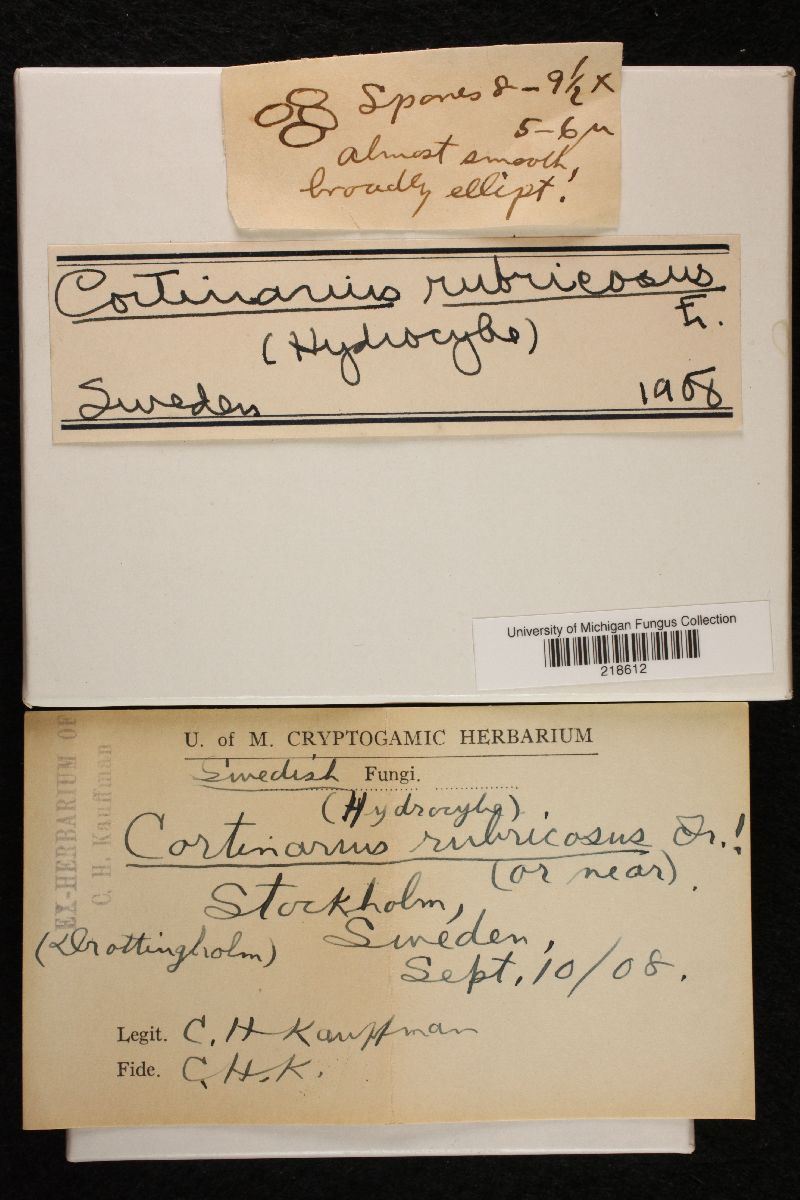 Spores 8-9½ x
5-6 µ
almost smooth,
broadly ellipt!
Cortinarius rubricosus
Fr.
(Hydrocybe)
Sweden 1908
University of Michigan Fungus Collection
218612
EX-HERBARIUM OF
C. H. Kauffman
U. of M. CRYPTOGAMIC HERBARIUM
Swedish Fungi.
(Hydrocybe)
Cortinarius rubricosus Fr.!
(or near).
Stockholm,
(Drottingholm) Sweden,
Sept. 10/08.
Legit. C. H Kauffman
Fide. C.H.K.